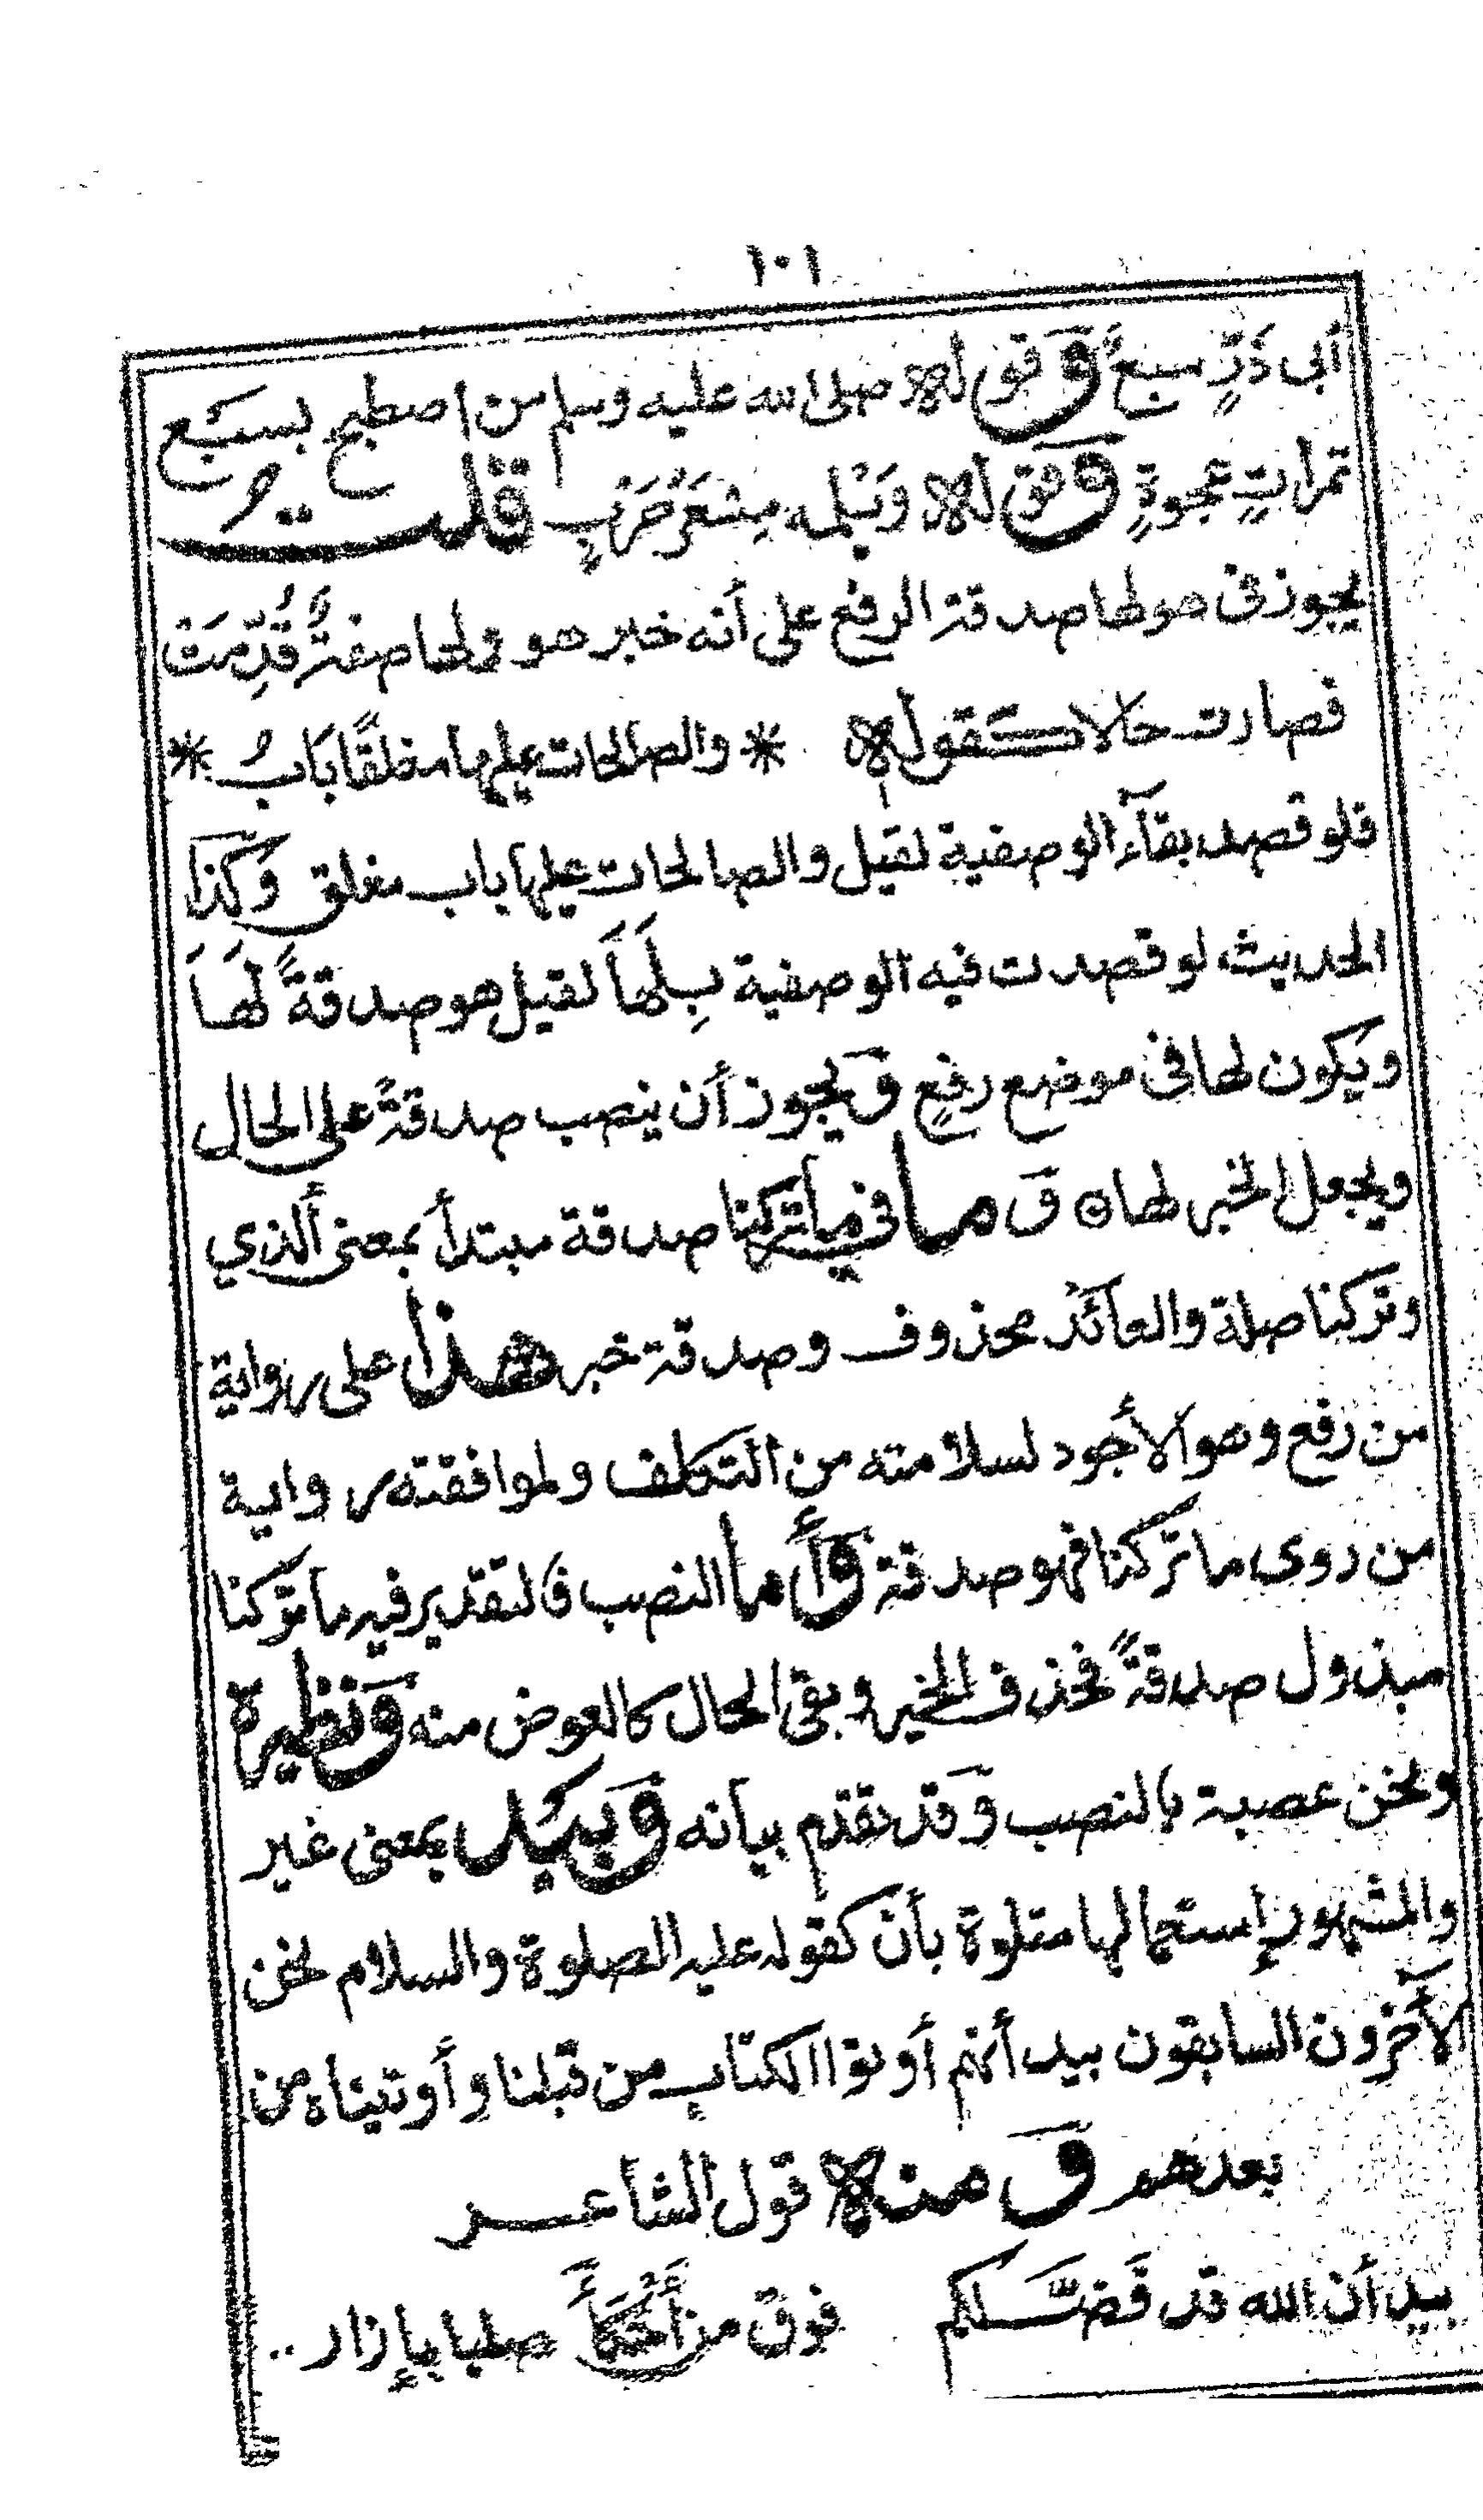 ١٠١
أبى ذَرٍّ سبعً وَقوله صلى الله عليه وسلم من اصطبح بسبع
تمراتٍ عجوةٍ وَقوله وَيْلمه مِسْعَرُ حَرْبٍ قلت
يجوز فى هو لها صدقة الرفع على أنه خبر هو ولها صفةٌ قُدِّمَت
فصارت حالا كقوله * والصالحات عليها مغلقًا بَابُ *
فلو قصد بقآء الوصفية لقيل والصالحات عليها باب مغلق وَكذا
الحديث لو قصدت فيه الوصفية بِلَهَا لقيل هو صدقةً لَهَا
ويكون لها فى موضع رفعٍ وَيجوز أن ينصب صدقةً على الحال
ويجعل الخبر لها ۞ وَما في ما تركنا صدقة مبتدأ بمعنى ألذي
وتركنا صلة والعآئد محذوف وصدقة خبر هذا على رواية
من رفع وهو الأجود لسلامته من التكلف ولموافقته رواية
من روى ما تركنا فهو صدقة وَأما النصب فالتقدير فيه ما تركنا
مبذول صدقةً فحذف الخبر وبقى الحال كالعوض منه وَنظيرة
ونحن عصبة بالنصب وَقد تقدم بيانه وَبَيْد بمعنى غير
والمشهور إستعمالها متلوة بأن كقوله عليه الصلوة والسلام نحن
الآخرون السابقون بيد أنهم أوتوا الكتاب من قبلنا وأوتيناه من
بعدهم وَمنه قول الشاعر
بيد أن الله قد فَضَّلكم فوق من أَحْكَأَ صلبا بإزار ..